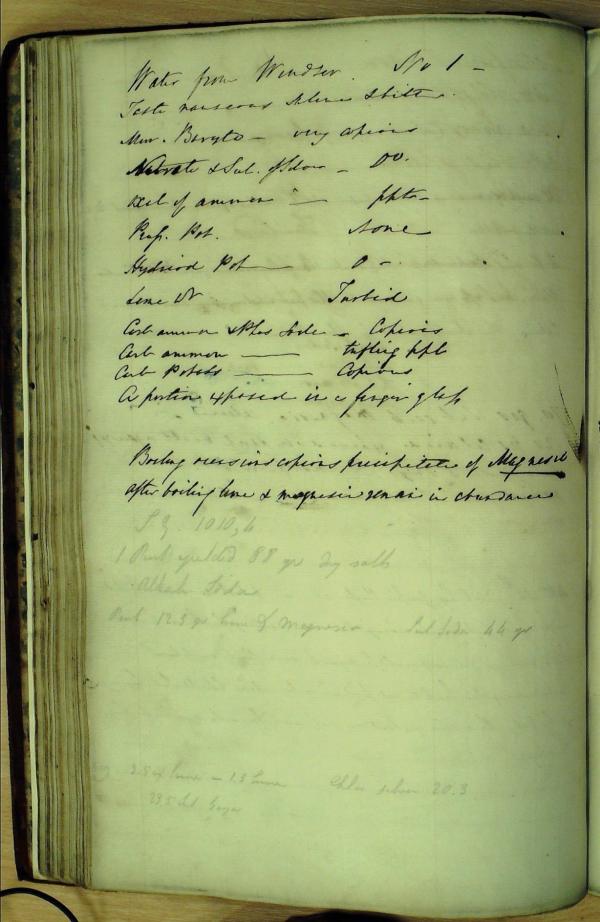 Water from Windsor. No 1 -
Taste nauseous saline & bitter.
Mur. Baryta - very copious
Nitrate & Sul. of Silver - Do.
Oxal of ammon - ppte -
Pruss. Pot. None
Hydriod Pot - 0 -
Lime Wr Turbid
Carb ammon & Phos Soda - Copious
Carb ammon - trifling ppt
Carb Potass - Copious
A portion exposed in a finger glass
Boiling occasions copious precipitate of Magnesia
after boiling lime & magnesia remain in abundance
S G. 1010,4
1 Pint yielded 88 grs dry salts
Alkali Soda
Pint 12.5 grs lime & Magnesia Sul Soda 44 gr
lime = 1.3 Lime Chlor silver 20.3